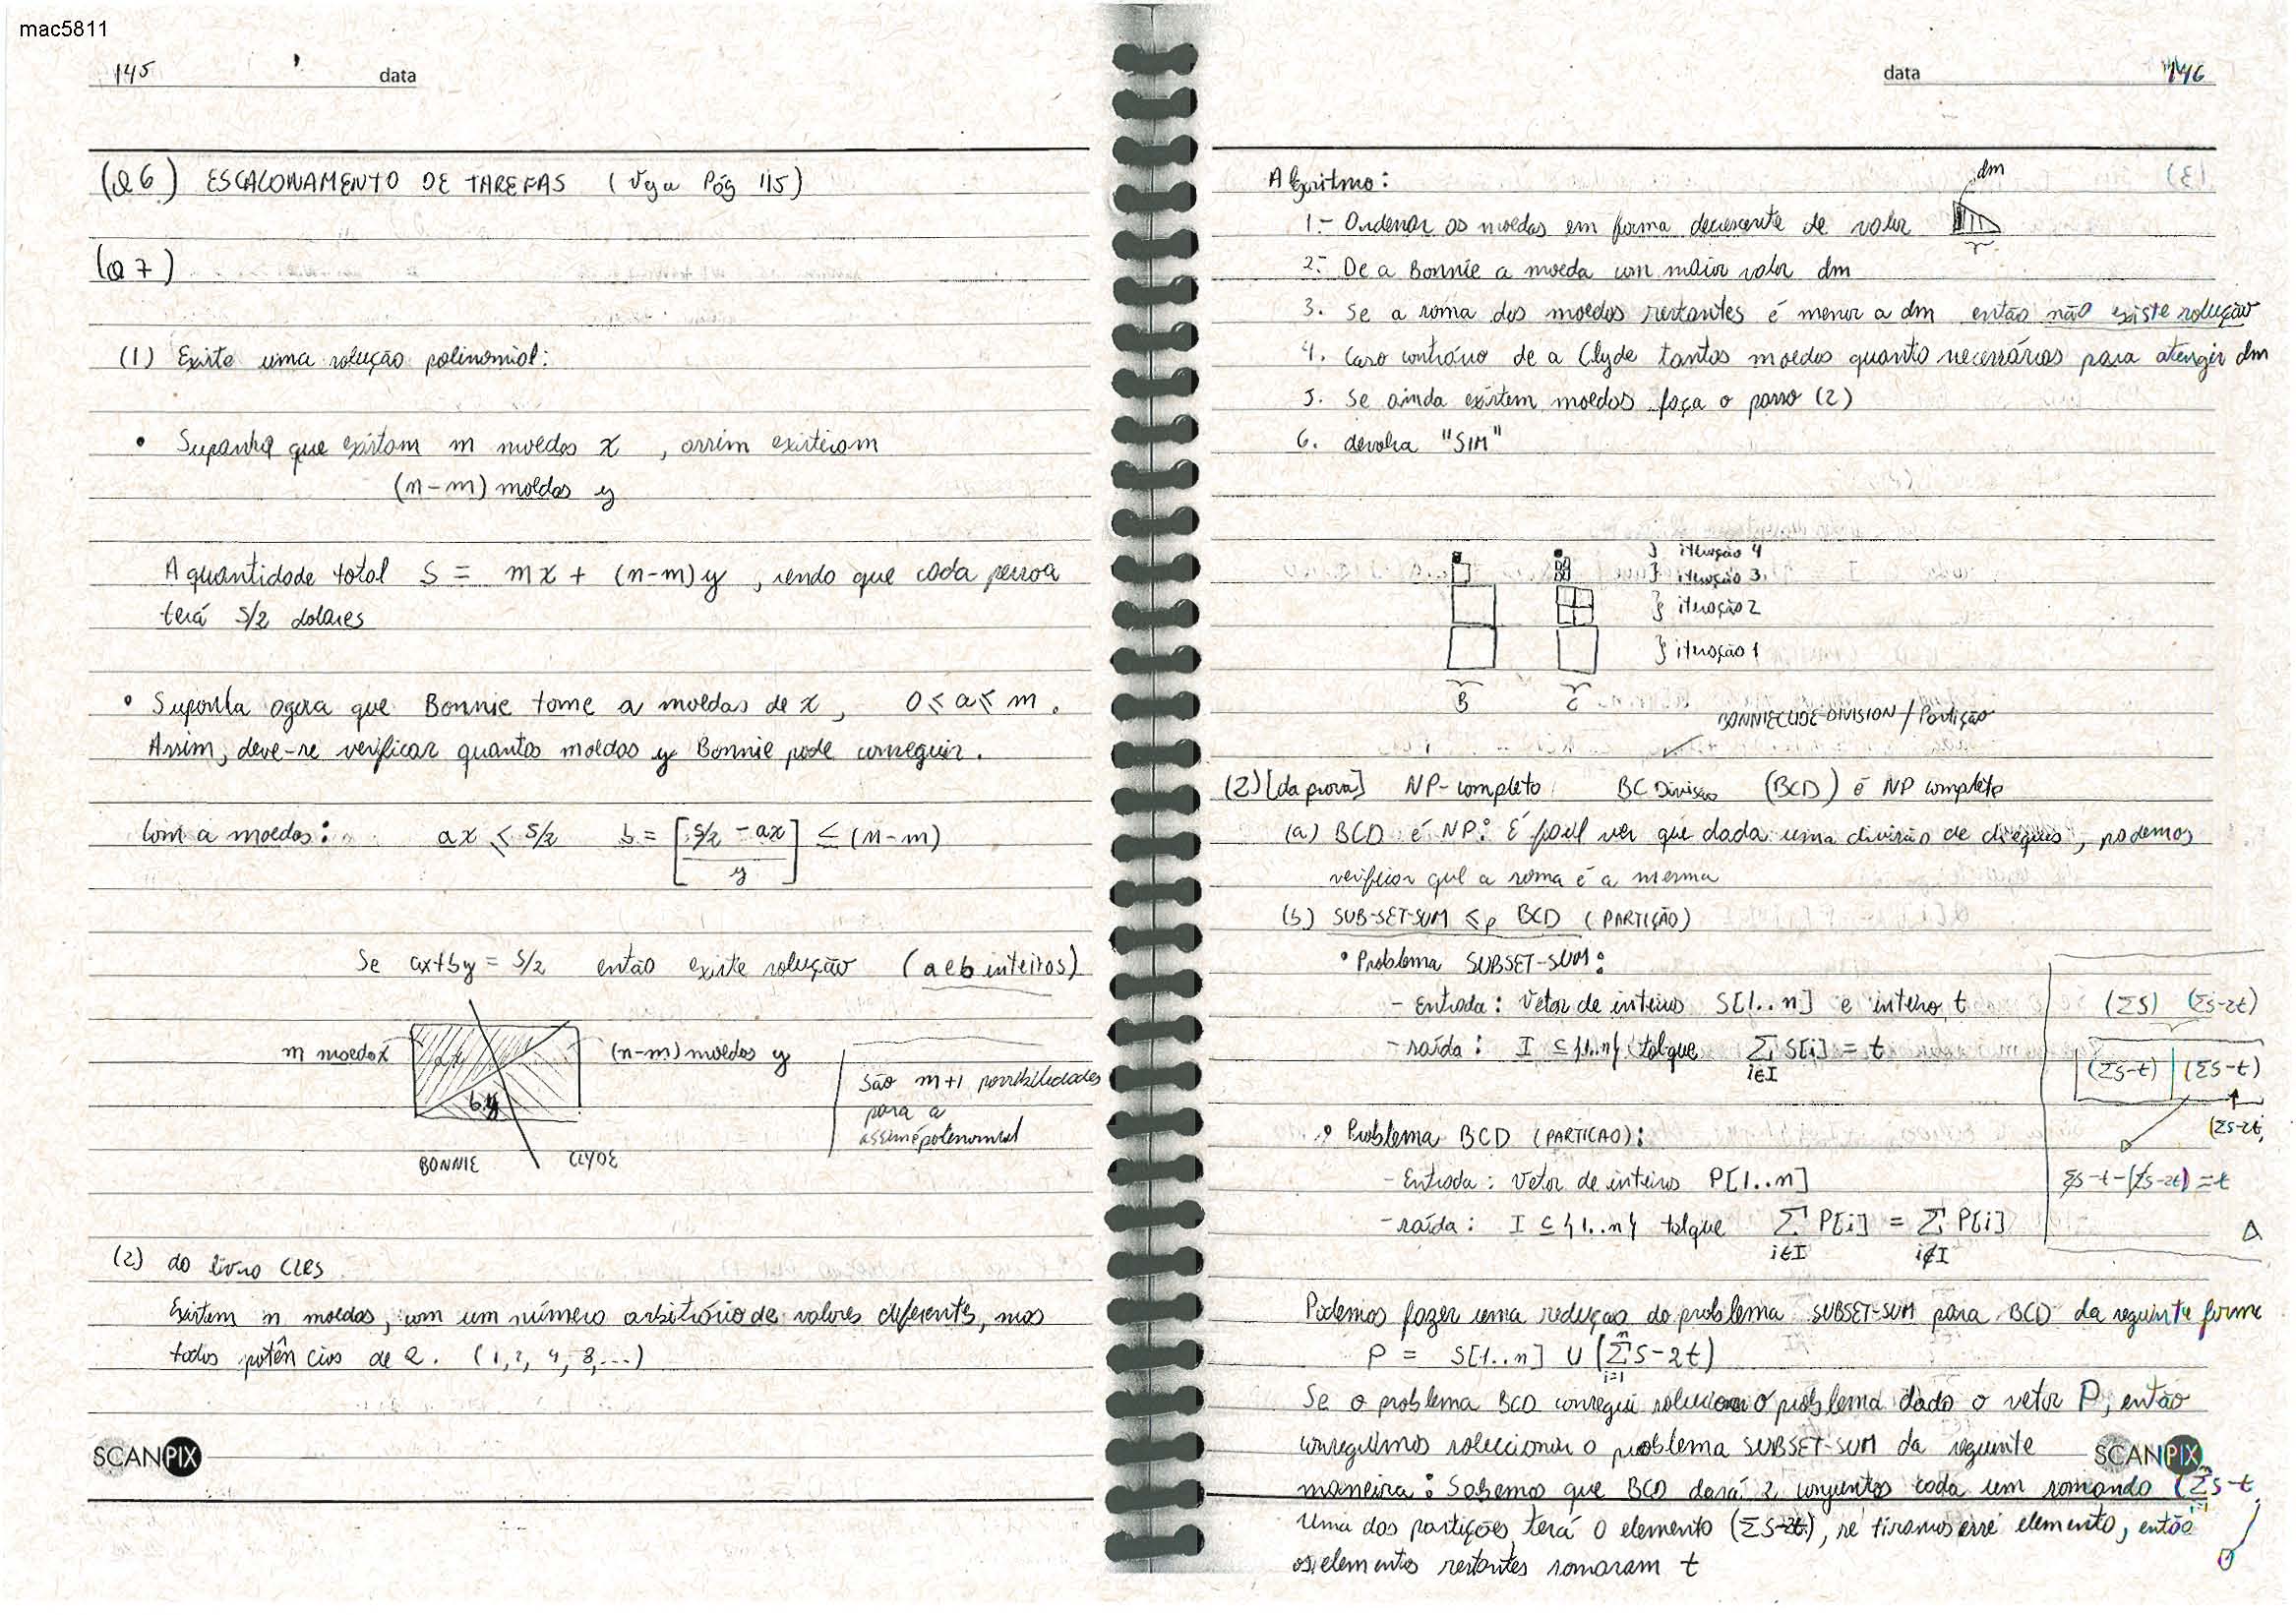 mac5811
145 data
(Q6) ESCALONAMENTO DE TAREFAS (Veja Pág 115)
(Q7)
(1) Existe uma solução polinomial:
• Supanha que existam m moedas x , assim existiram
(n-m) moedas y
A quantidade total S = mx + (n-m)y , sendo que cada pessoa
terá S/2 dolares
• Suponha agora que Bonnie tome a moedas de x, 0 ≤ a ≤ m.
Assim, deve-se verificar quantas moedas y Bonnie pode conseguir.
Com a moedas: ax ≤ S/2 b = [S/2 - ax / y] ≤ (n-m)
Se ax+by = S/2 então existe solução (a e b inteiros)
m moedas x ax by (n-m) moedas y
BONNIE CLYDE
São m+1 possibilidades
para a
assim é polinomial
(2) do livro CLRS
Existem n moedas, com um número arbitrário de valores diferentes, mas
todos potências de 2. (1, 2, 4, 8,...)
SCANPIX
data 146
Algoritmo: dm
1.- Ordenar as moedas em forma decrescente de valor
2.- De a Bonnie a moeda com maior valor dm
3. Se a soma das moedas restantes é menor a dm então não existe solução
4. Caso contrário de a Clyde tantas moedas quanto necessárias para atengir dm
5. Se ainda existem moedas faça o passo (2)
6. devolva "SIM"
} iteração 4
} iteração 3.
} iteração 2
} iteração 1
B C
BONNIECLIDE-DIVISION / Partição
(2) [da prova] NP-completo BC Divisão (BCD) é NP completo
(a) BCD é NP: É facil ver que dada uma divisão de cheques, podemos
verificar que a soma é a mesma
(b) SUB-SET-SUM ≤p BCD (PARTIÇÃO)
• Problema SUBSET-SUM:
- Entrada: Vetor de inteiros S[1..n] e inteiro t
- saída: I ⊆ {1..n} tal que Σ i∈I S[i] = t
(ΣS) (ΣS-2t)
(ΣS-t) | (ΣS-t)
(ΣS-2t)
ΣS-t-(ΣS-2t) = t
• Problema BCD (PARTICAO):
- Entrada: Vetor de inteiros P[1..n]
- saída: I ⊆ {1..n} tal que Σ i∈I P[i] = Σ i∉I P[i]
Podemos fazer uma redução do problema SUBSET-SUM para BCD da seguinte forma
P = S[1..n] U (Σ i=1 n S-2t)
Se o problema BCD consegui solucionar o problema dado o vetor P, então
conseguimos soluccionar o problema SUBSET-SUM da seguinte
SCANPIX
maneira: Sabemos que BCD dará 2 conjuntos cada um somando (Σ i=1 n S-t
Uma das partições terá o elemento (ΣS-2t), se tiramos esse elemento, então
os elementos restantes somaram t